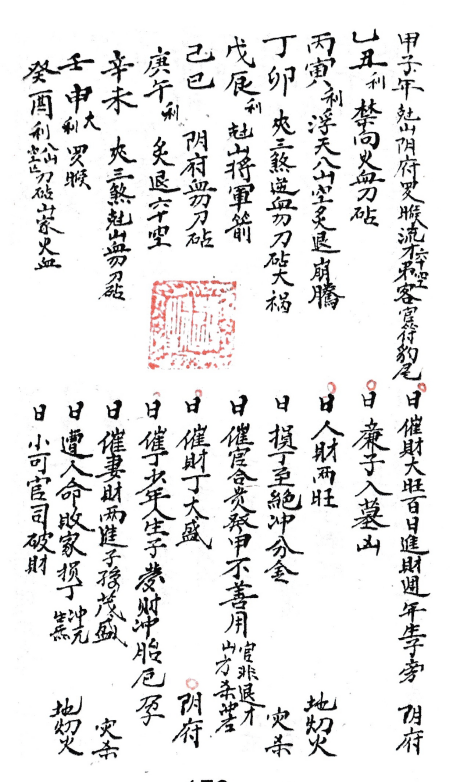 甲子年 尅山阴府罗睺流才六十空弔客官符豹尾
乙丑利 禁向火血刃砧
丙寅利 浮天八山空炙退崩騰
丁卯 夾三煞逆血刃刀砧大祸
戊辰利 尅山将軍箭
己巳 阴府血刃刀砧
庚午利 炙退六十空
辛未 夾三煞尅山血刃刀砧
壬申大利 罗睺
癸酉利 八山空亡刀砧山家火血
日催財大旺百日進財週年生子旁 阴府
日 廉子入墓凶
日人財两旺 地刼火
日 損丁至絶冲分金 灾杀
日催官合贵發甲不善用官非退才山方杀
日催財丁大盛 阴府
日催丁少年人生子發財冲胎厄孕
日催妻財两進子孫茂盛 灾杀
日遭人命敗家損丁冲元 地刼火
日小可官司破財